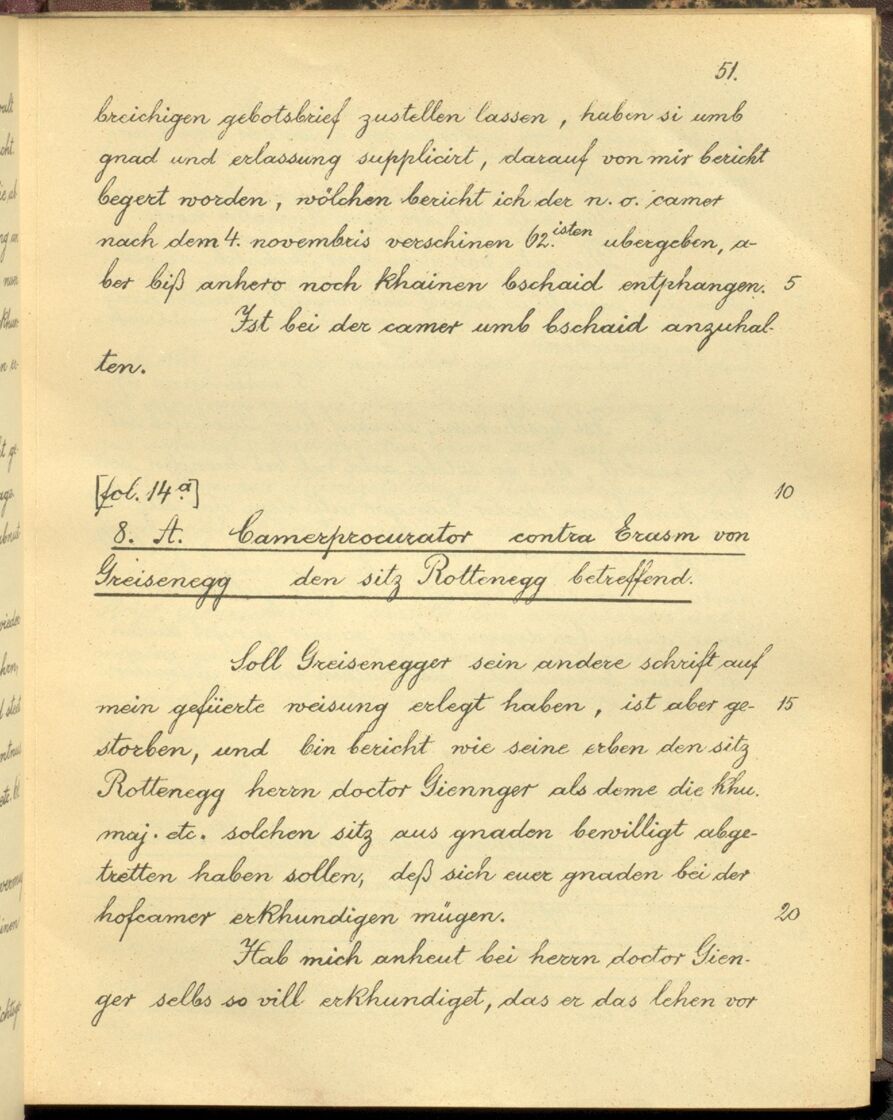 51.
breichigen gebotsbrief zustellen lassen, haben si umb
gnad und erlassung supplicirt, darauf von mir bericht
begert worden, wölchen bericht ich der n. o. camer
nach dem 4. novembris verschinen 62.isten ubergeben, a-
ber biß anhero noch khainen bschaid entphangen. 5
Ist bei der camer umb bschaid anzuhal-
ten.
[fol. 14a] 10
8. A. Camerprocurator contra Erasm von
Greisenegg den sitz Rottenegg betreffend.
Soll Greisenegger sein andere schrift auf
mein gefüerte weisung erlegt haben, ist aber ge- 15
storben, und bin bericht wie seine erben den sitz
Rottenegg herrn doctor Giennger als deme die khu.
maj. etc. solchen sitz aus gnaden bewilligt abge-
tretten haben sollen, deß sich euer gnaden bei der
hofcamer erkhundigen mügen. 20
Hab mich anheut bei herrn doctor Gien-
ger selbs so vill erkhundiget, das er das lehen vor